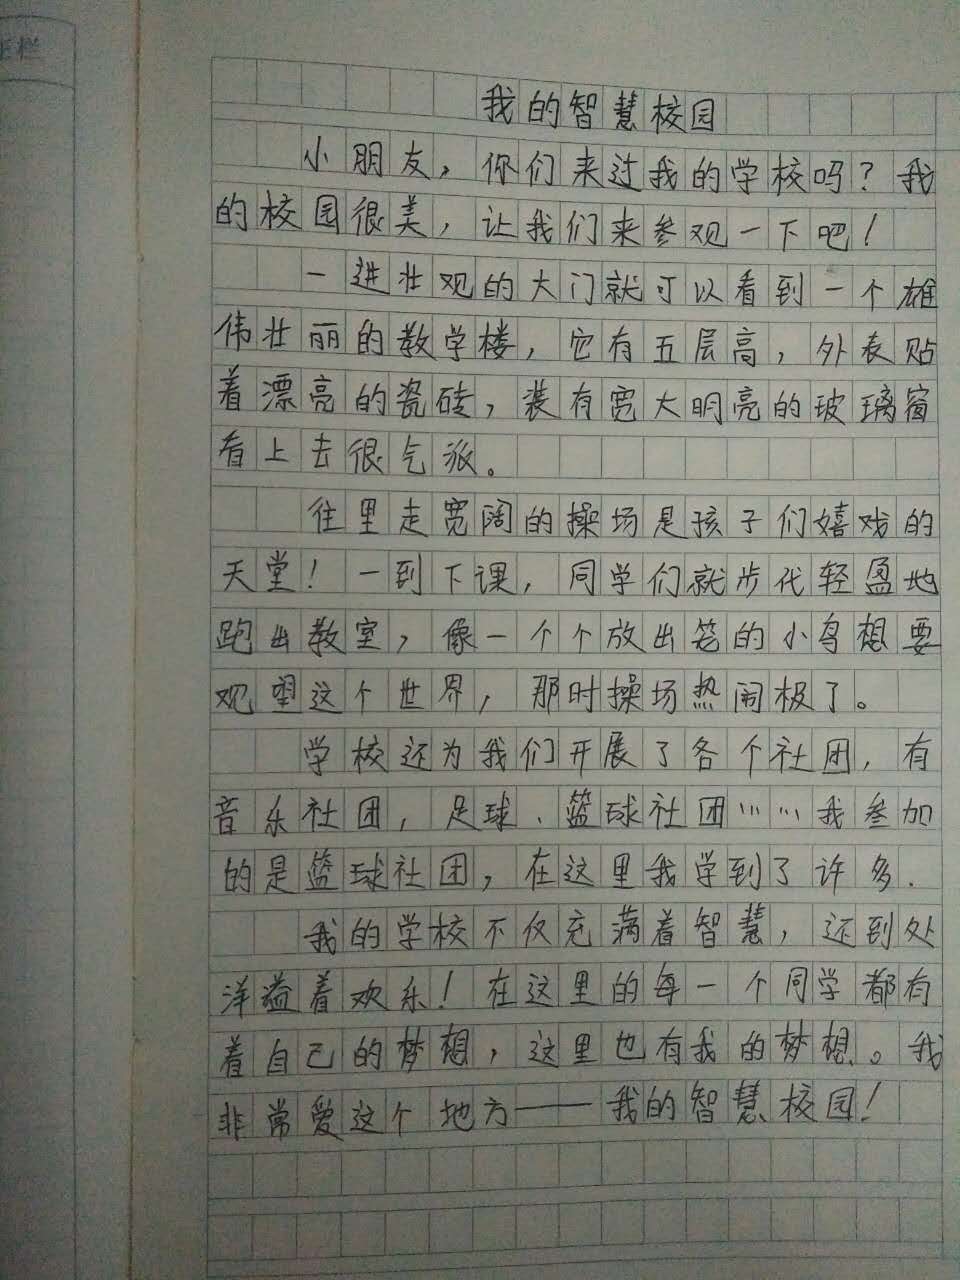 我的智慧校园
小朋友，你们来过我的学校吗？我
的校园很美，让我们来参观一下吧！
一进壮观的大门就可以看到一个雄
伟壮丽的教学楼，它有五层高，外表贴
着漂亮的瓷砖，装有宽大明亮的玻璃窗
看上去很气派。
往里走宽阔的操场是孩子们嬉戏的
天堂！一到下课，同学们就步代轻盈地
跑出教室，像一个个放出笼的小鸟想要
观望这个世界，那时操场热闹极了。
学校还为我们开展了各个社团，有
音乐社团，足球、篮球社团……我参加
的是篮球社团，在这里我学到了许多.
我的学校不仅充满着智慧，还到处
洋溢着欢乐！在这里的每一个同学都有
着自己的梦想，这里也有我的梦想。我
非常爱这个地方——我的智慧校园！